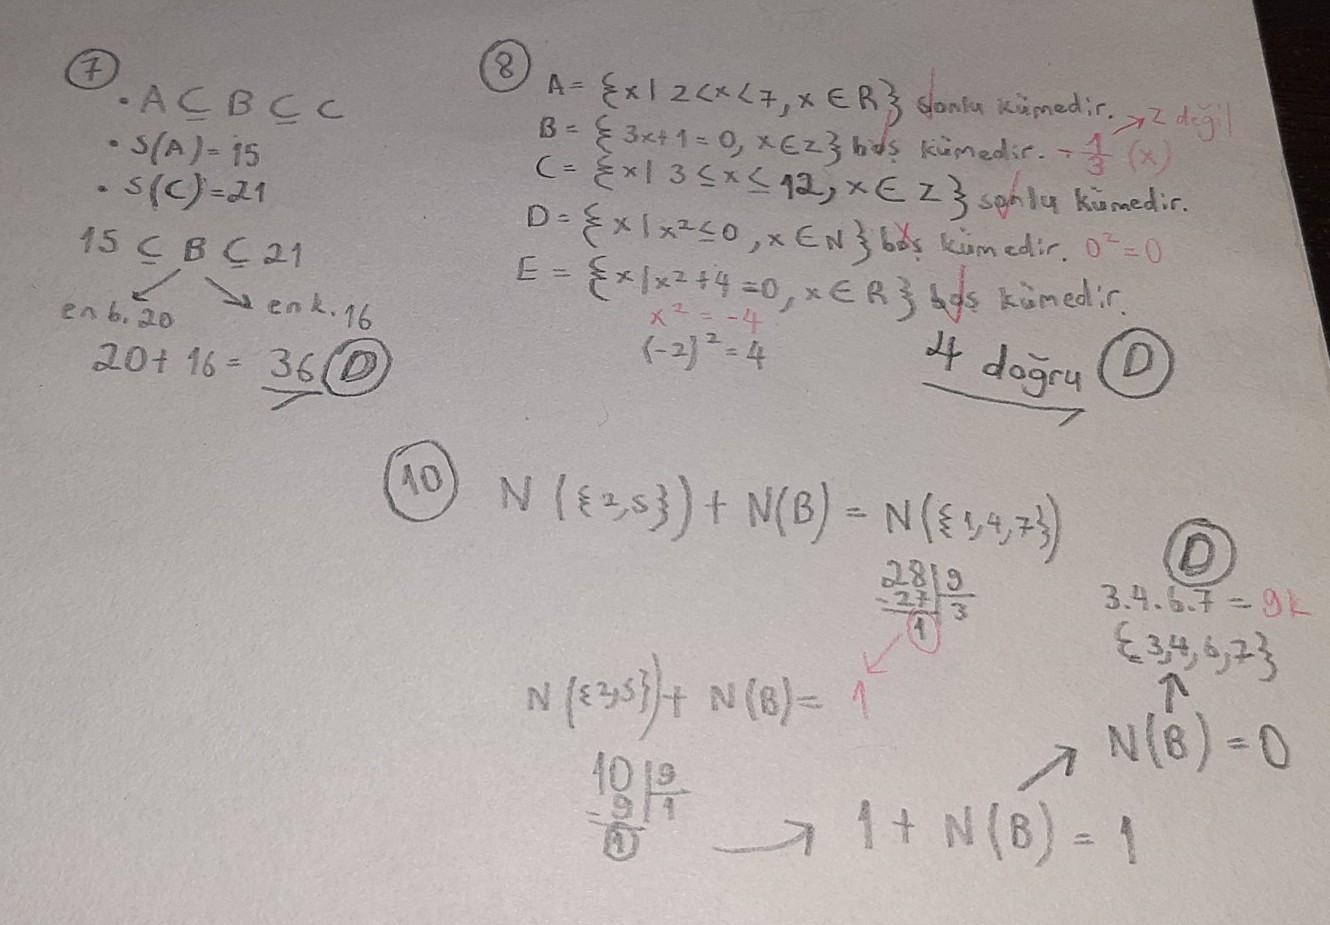 7
• A ⊆ B ⊆ C
• S(A) = 15
• S(C) = 21
15 ⊆ B ⊆ 21
en b. 20
en k. 16
20 + 16 = 36 D
8
A = {x | 2 < x < 7, x ∈ R} sonlu kümedir.
B = {3x+1 = 0, x ∈ Z} boş kümedir. - 1/3 (x) → Z değil
C = {x | 3 ≤ x ≤ 12, x ∈ Z} sonlu kümedir.
D = {x | x² ≤ 0, x ∈ N} boş kümedir. 0² = 0
E = {x | x² + 4 = 0, x ∈ R} boş kümedir.
x² = -4
(-2)² = 4
4 doğru D
10
N ({2,5}) + N(B) = N({1,4,7})
28 | 9
- 27 3
1
N ({2,5}) + N(B) = 1
10 | 9
- 9 1
1
→ 1 + N(B) = 1
N(B) = 0
{3,4,6,7}
3.4.6.7 = 9k
D